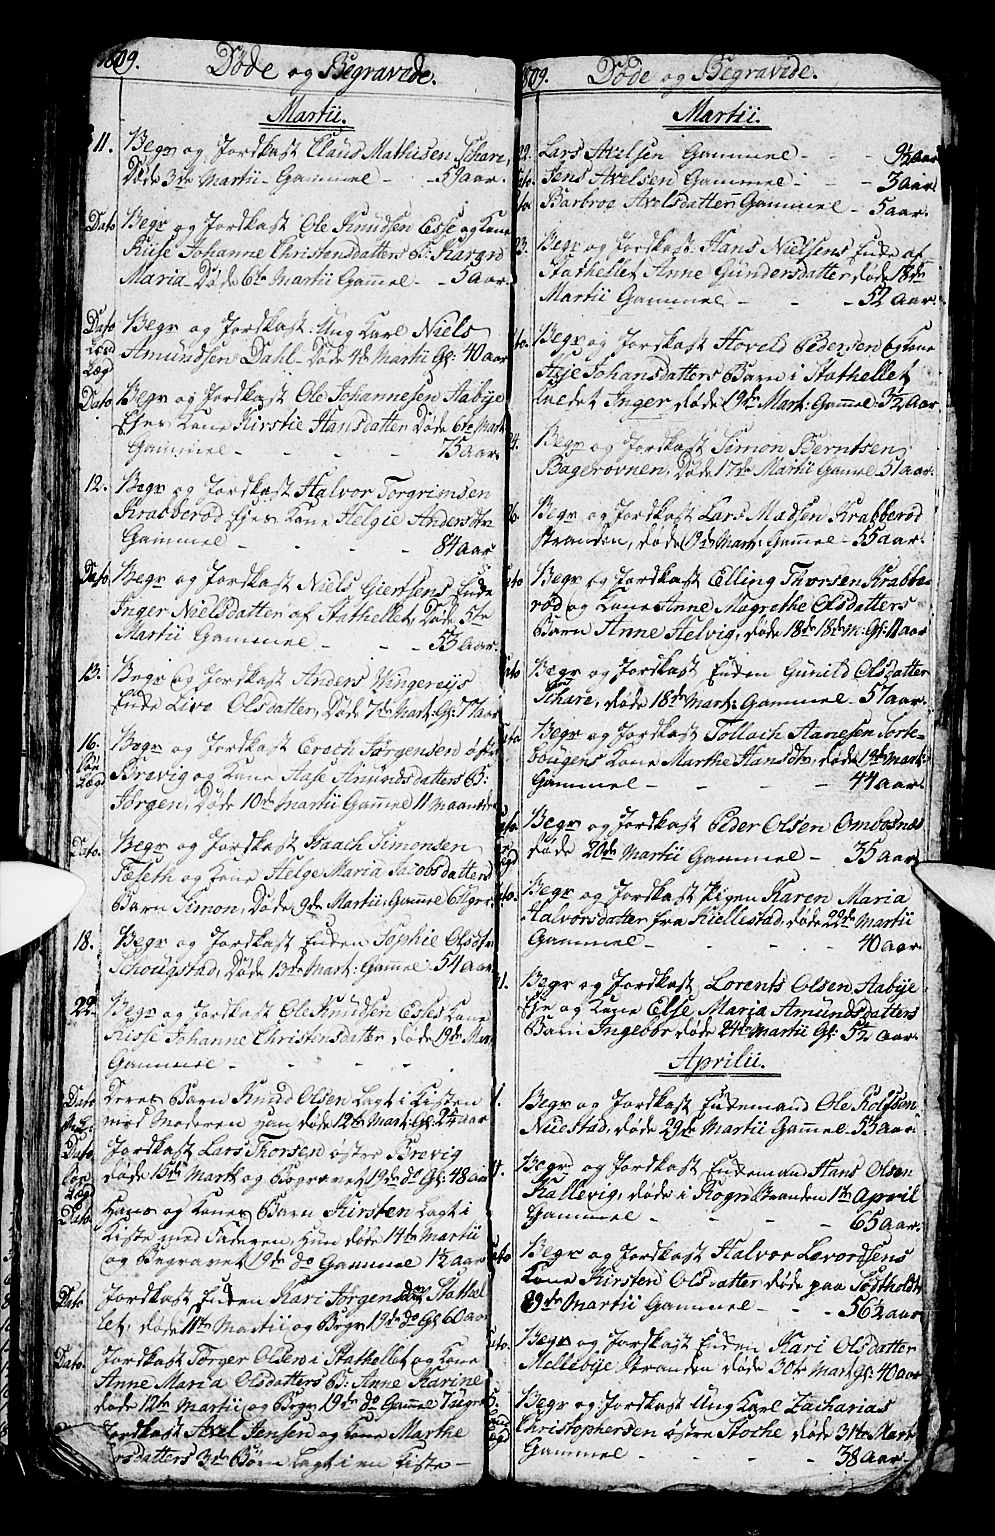 1809. Døde og Begravede.
Martii.
11. Begr og Jordkast Claus Mathisen Schare,
Døde 3de Martii - Gammel - - 59 aar.
Dato Begr og Jordkast Ole Knudsen Esse og Kone
Kuse Johanne Christensdatters B: Karen
Maria - Døde 6te Martii Gamel - 5 aar.
Dato Begr og Jordkast: Ung Karl Niels
Amundsen Dahl - Døde 4de Martii Gl: 40 aar
Dato Begr og Jordkast Ole Johannesen Aabye
Ejes Kone Kirstie Hansdatter Døde 6te Mart
Gammel - - - - 75 aar.
12. Begr og Jordkast Halvor Torgrimsen
Krabberød Ejes Kone Helgie Andersdtr
Gammel - - - - 84 aar
Dato Begr og Jordkast Niels Giertsens Enke
Inger Nielsdatter af Stathellet, Døde 5te
Martii Gammel - - - 53 aar.
13. Begr og Jordkast Anders Wingereijs
Enke Live Olsdatter, Døde 7de Mart. Gl: 77 aar
16. Begr og Jordkast Erach Jørgensen østre
Brevig og Kone Aase Amundsdatters B:
Jørgen, Døde 10de Martii Gamel 11 maaneder
Dato. Begr og Jordkast Isaach Simonsen
Toseth og Kone Helge Maria Jacobsdatters
Barn Simon, Døde 9de Martii Gamel 6 Uger.
18. Begr og Jordkast Enken Sophie Olsdtr
Schougstad, Døde 13de Mart: Gamel - 54 aar
22. Begr og Jordkast Ole Knudsen Esses Kone
Kisse Johanne Christensdatter døde 19de Mar
Gammel - - - -
Dato Deres Barn Knud Olsen Lagt i Kisten
med Moderen han døde 12te Mart: Gl: 2¼ aar
Dato Jordkast Lars Thorsen østre Brevig
døde 15de Mart og Begravet 19de do Gl: 48 aar
Dato Hans og Kones Barn Kirsten Lagt i
Kiste med Faderen, Hun døde 14de Martii
og Begravet 19de do Gammel 1½ aar
Dato Jordkast Enken Kari Jørgensdtr Stathel
let, døde 11te Martii og Begr 19de do Gl: 60 aar
Dato. Jordkast Torger Olsen i Stathellet og Kone
Anne Maria Olsdatters B: Anne Karine
døde 12te Martii og Begr 19de do Gamel 7 Uger
Jordkast Axel Jensen og Kone Marthe
Larsdatters 3de Børn Lagt i en Kiste -
1809. Døde og Begravede.
Martii.
22. Lars Axelsen Gammel - - 9½ aar
Dato. Jens Axelsen Gammel - - - 3 aar.
Dato Barbroe Axelsdatter Gammel - 5 aar.
23. Begr og Jordkast Hans Nielsens Enke af
Stathellet Anne Gundersdatter, døde 18de
Martii Gammel - - - 52 aar.
Dato. Begr og Jordkast Hoveld Pedersen og Kone
Aeje Johansdatters Barn i Stathellet
Kaldet Inger døde 19de Mart: Gamel 3½ aar.
24. Begr og Jordkast Simon Berntsen
Bagerovnen, Døde 17de Martii Gamel 51 aar.
26. Begr og Jordkast Lars Madsen Krabberød
Stranden, døde 19de Mart: Gamel - 55 aar.
Dato Begr og Jordkast Elling Thorsen Krabbe-
rød og Kone Anne Magrethe Olsdatters
Barn Anne Helvig, døde 18de 18de M: Gl: 11 aar
Dato Begr og Jordkast Enken Gunild Olsdatter
Schare, døde 18de Mart: Gammel - 57 aar.
Dato Begr og Jordkast Tollach Hansen Sorte-
bougens Kone Marthe Hansdtr, døde 19de Mart:
Gammel - - - - 44 aar.
Dato Begr og Jordkast Peder Olsen Ombosnes
døde 20de Martii Gammel - 35 aar
Dato. Begr og Jordkast Pigen Karen Maria
Halvorsdatter fra Kiellestad, døde 22de Martii
Gammel - - - - 40 aar.
Begr og Jordkast Lorents Olsen Aabye
Eje og Kone Else Maria Amundsdatters
Barn Ingebor døde 24de Martii Gl: 5½ aar.
Aprilii.
1. Begr og Jordkast Enkemand Ole Rolfsen
Nuestad, døde 29de Martii Gamel - 53 aar.
4. Begr og Jordkast Enkemand Hans Olsen
Kallevig, døde i Rognstranden 1te April
Gammel - - - - 65 aar.
Dato Begr og Jordkast Halvor Levordsens
Kone Kirsten Olsdatter døde paa Tødtholdt
29de Martii Gammel - - 56½ aar
Dato. Begr og Jordkast Enken Kari Olsdatter
Mellebye Stranden døde 30te Mart. Gl: 40 aar
Begr og Jordkast Ung Karl Zacharias
Christophersen østre Stoche døde 31te Mart
Gammel - - - - 38 aar -